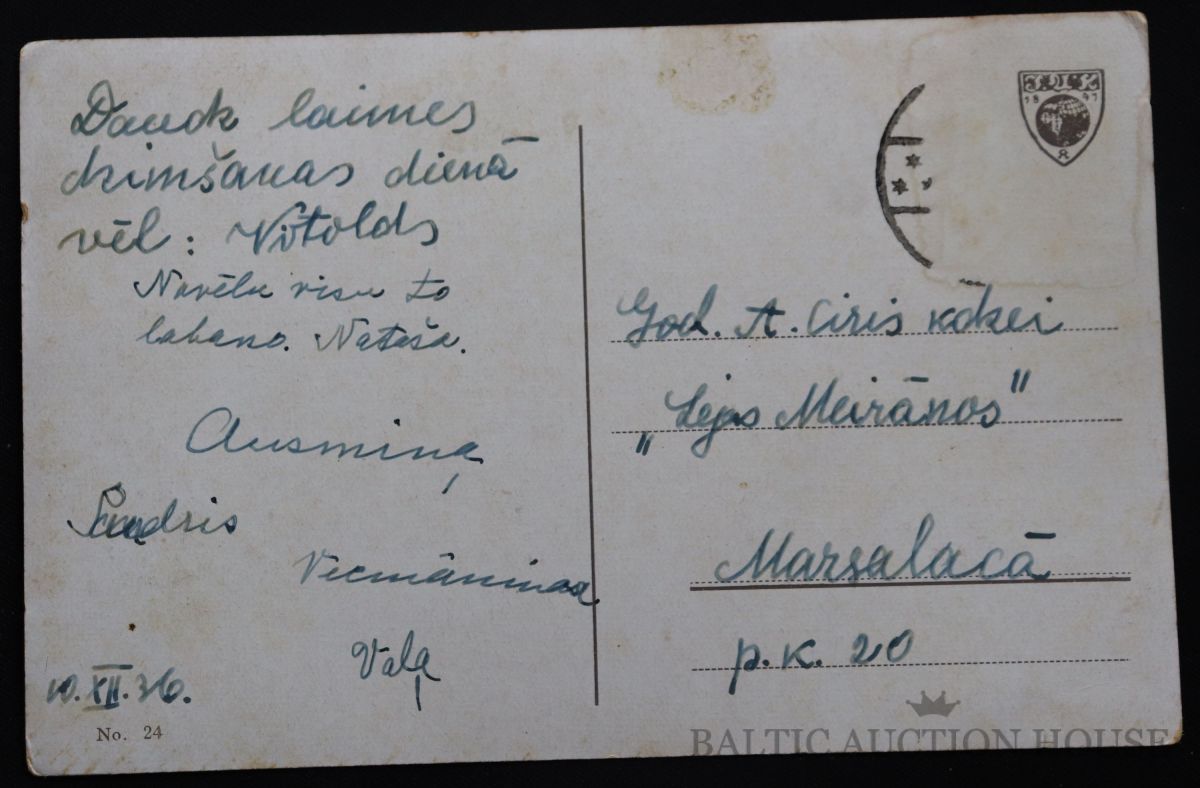 Daudz laimes
dzimšanas dienā
vēl: Vitolds
Novēlu visu to
labāko. Nataša.
Ausmiņa
Vecmāmiņa
Vaļa
10.XII.36.
No. 24
18 97
God. A. Ciris kdzei
„Lejas Meirānos"
Mazsalacā
p.k. 20
BALTIC AUCTION HOUSE